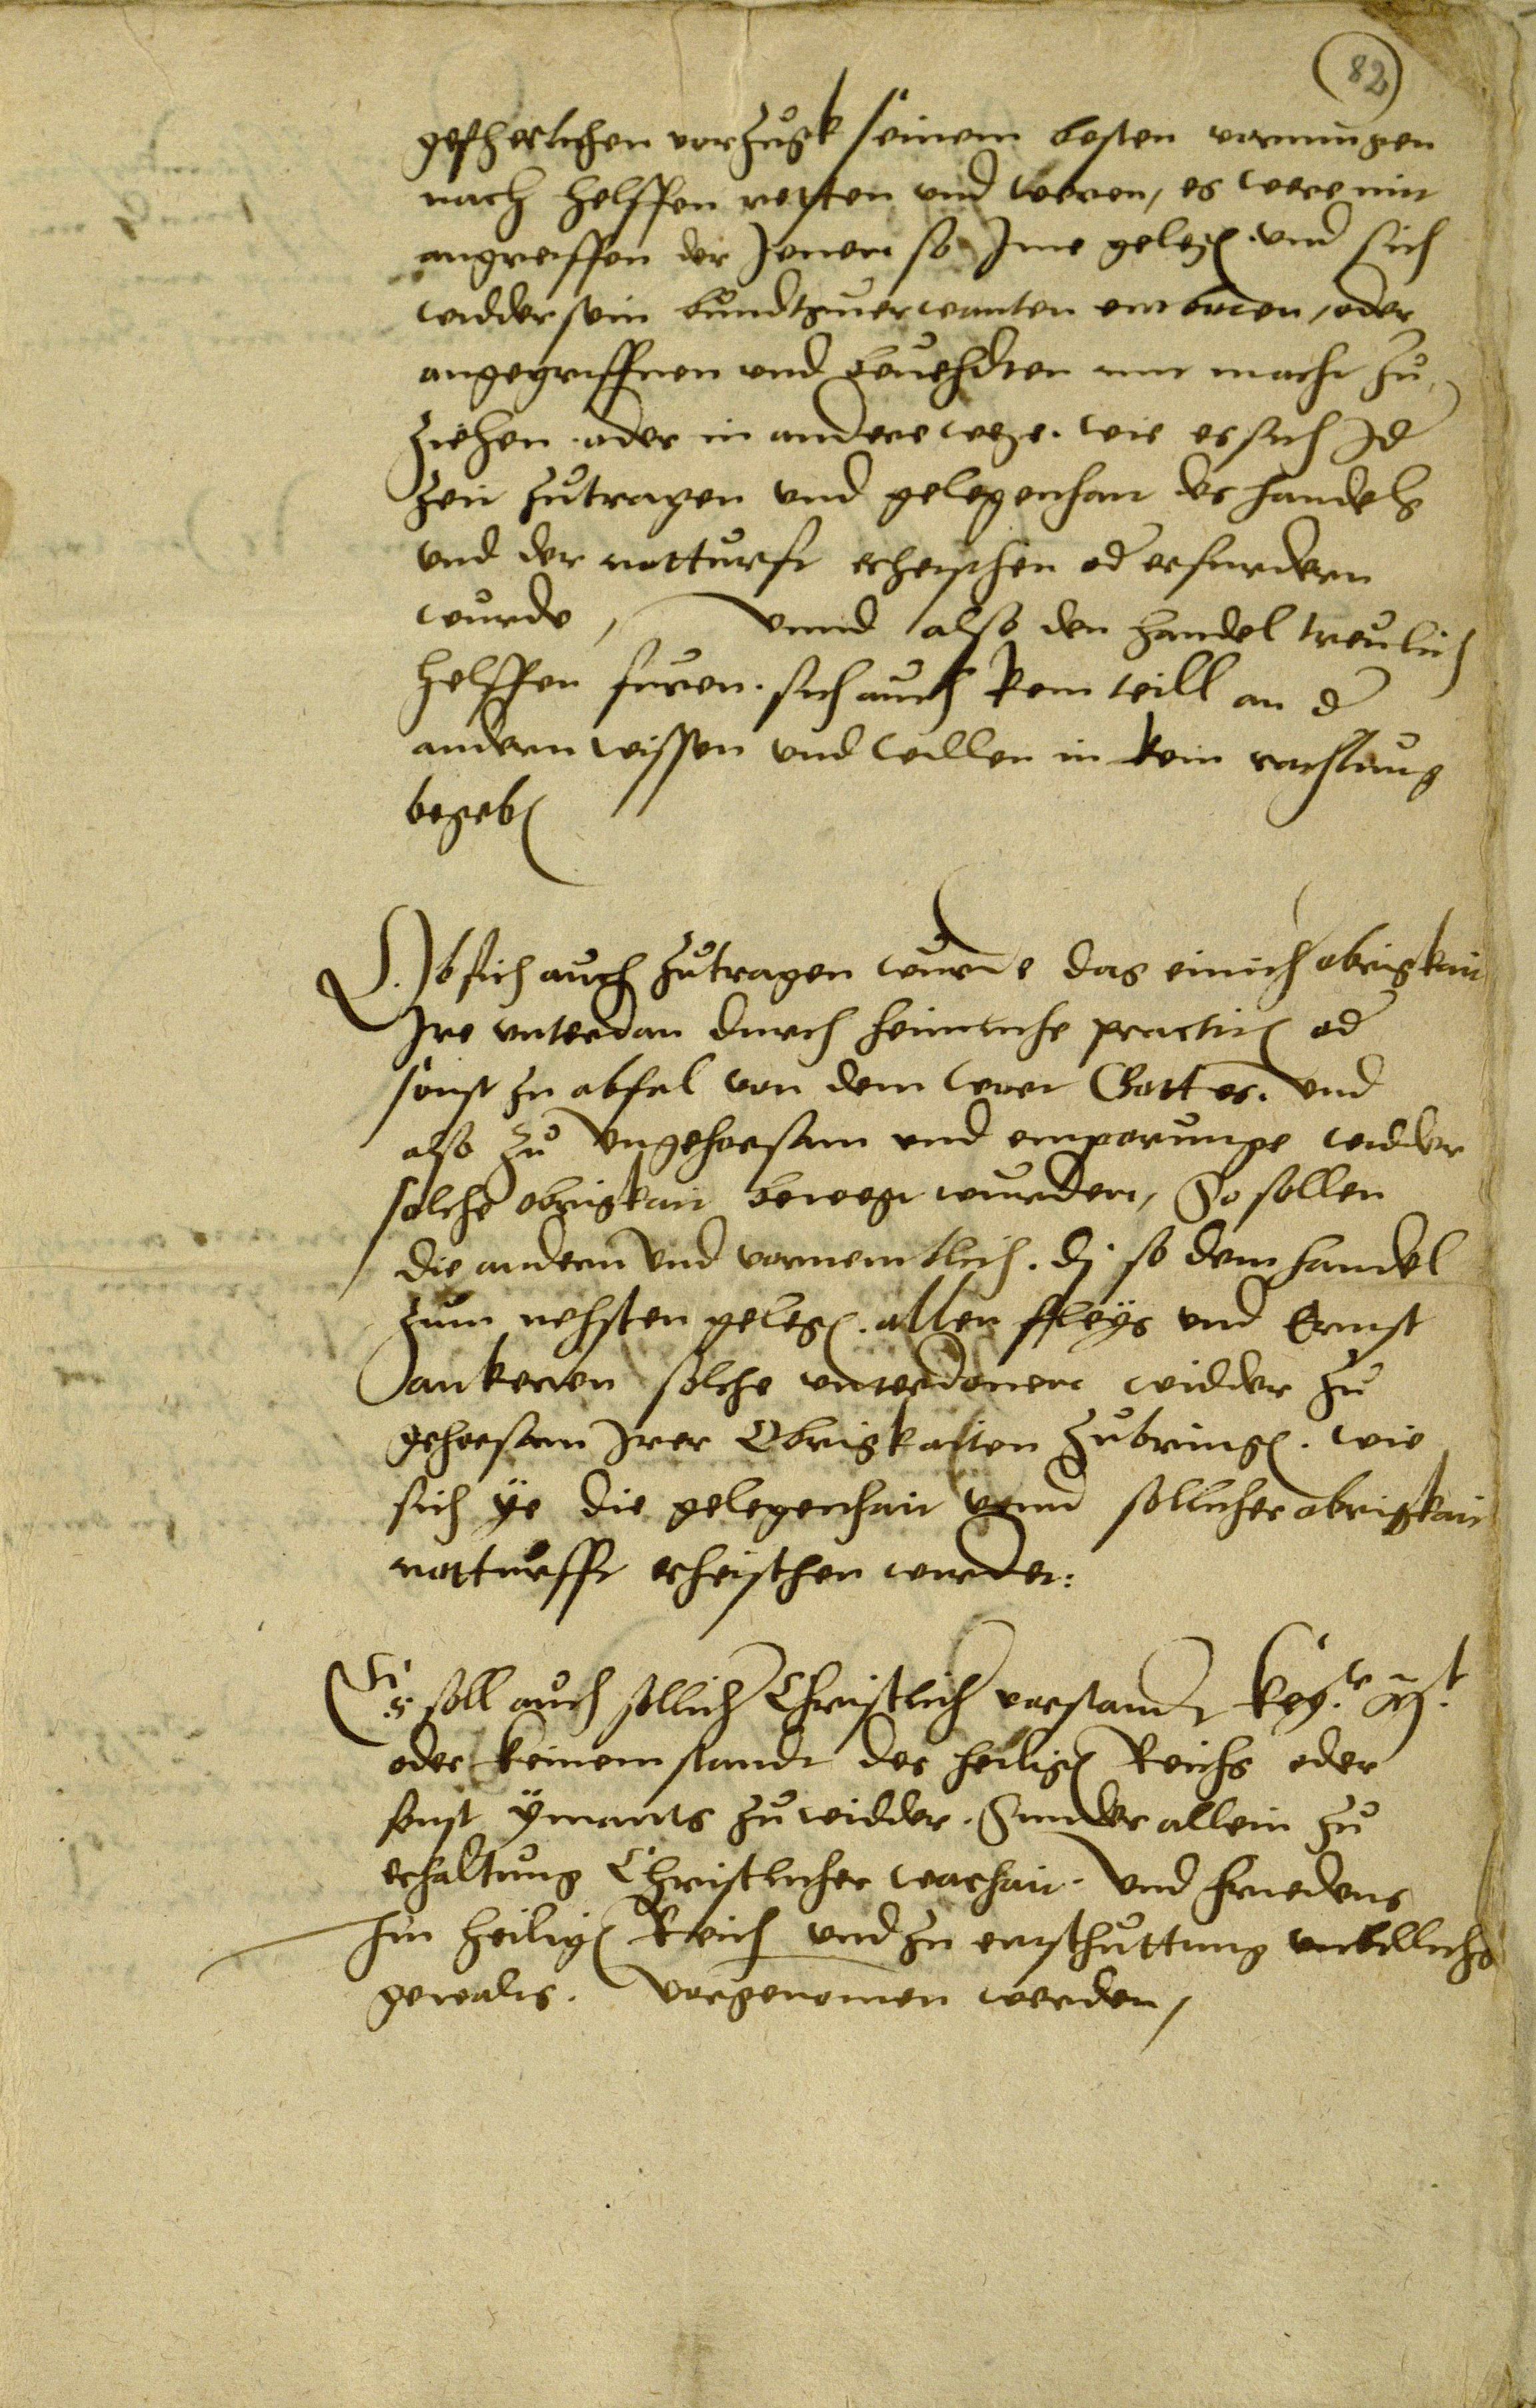 82
geferlichen vorzugk seinem besten vermugen
nach helffen retten und weren, es were mit
angreiffen der Jenen so Jme geleg(en) und sich
widder sein bundtzuerwanten emboren, oder
angegriffnen und beuehdten mit macht zu
ziehen oder in andere wege. wie es sich Jd(er)
zeit zutragen und gelegenhait des handels
und der notturft erheischen od(er) erfurdern
wurde, unnd also den handel treulich
helffen furen. sich auch kein teill an d(er)
andern wissen und willen in kein rachtung
begeb(en)
Ob sich auch zutragen wurde das einich obrigkait
Jre unterdan durch heimliche practick od(er)
sonst zu abfal von dem wort Gottes. und
also zu ungehorsam und emporunge widder
solche obrigkait bewegt wurden, So sollen
die andern und vornemblich. dj so dem handel
zum nehsten geleg(en). allen ffleys und Ernst
ankeren solche unterdanen widder zu
gehorsam Jrer Obrigkaiten zubring(en). wie
sich ye die gelegenhait unnd sollicher obrigkait
notturfft erheischen wurde:
Es soll auch sollich(er) Christlich(er) verstandt key.r Mt.
oder keinem standt des heilig(en) Reichs oder
sonst ymants zuwidder. Sunder allein zu
erhaltung Christlicher warhait. und friedens
Jm heilig(en) Reich und zu entschuttung unbillichs
gewalts. vorgenomen werden,